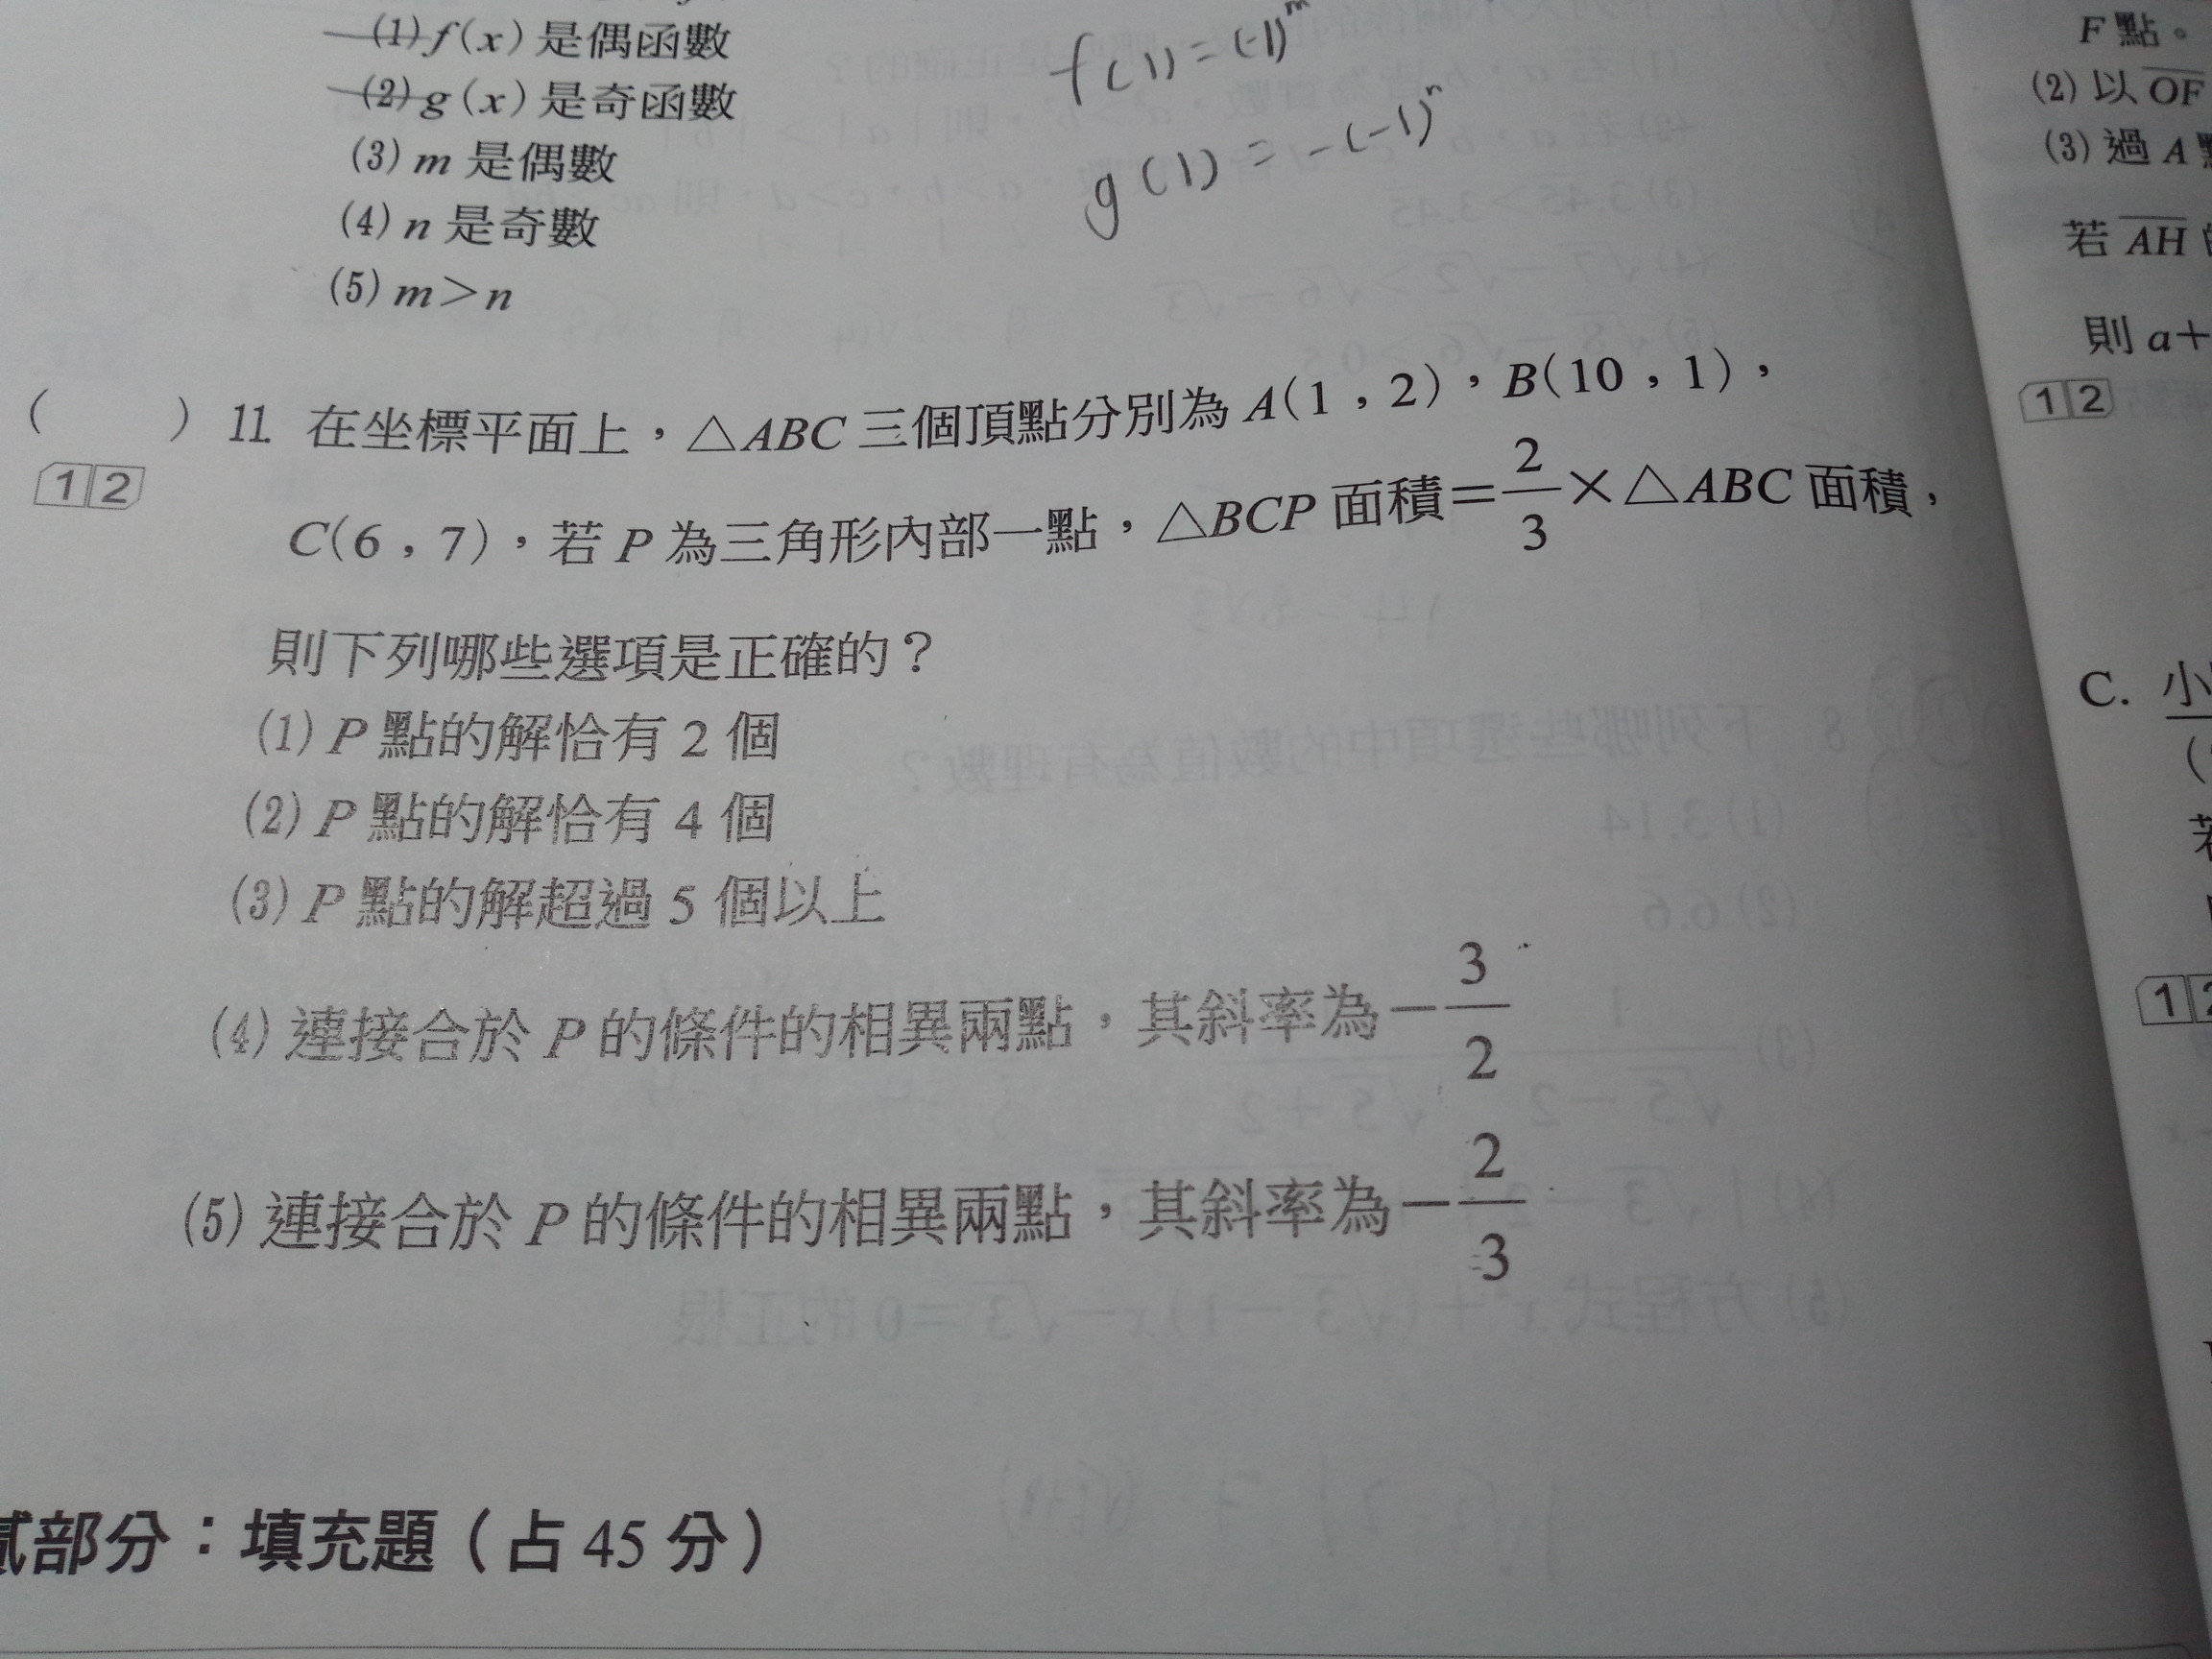 (1) f(x) 是偶函數
(2) g(x) 是奇函數
(3) m 是偶數
(4) n 是奇數
(5) m>n
f(1)=(-1)^m
g(1)=-(-1)^n
( ) 11. 在坐標平面上，△ABC 三個頂點分別為 A(1，2)，B(10，1)，
12
C(6，7)，若 P 為三角形內部一點，△BCP 面積=2/3×△ABC 面積，
則下列哪些選項是正確的？
(1) P 點的解恰有 2 個
(2) P 點的解恰有 4 個
(3) P 點的解超過 5 個以上
(4) 連接合於 P 的條件的相異兩點，其斜率為-3/2
(5) 連接合於 P 的條件的相異兩點，其斜率為-2/3
貳部分：填充題（占 45 分）
F 點。
(2) 以 OF
(3) 過 A
若 AH
則 a+
12
C. 小
1